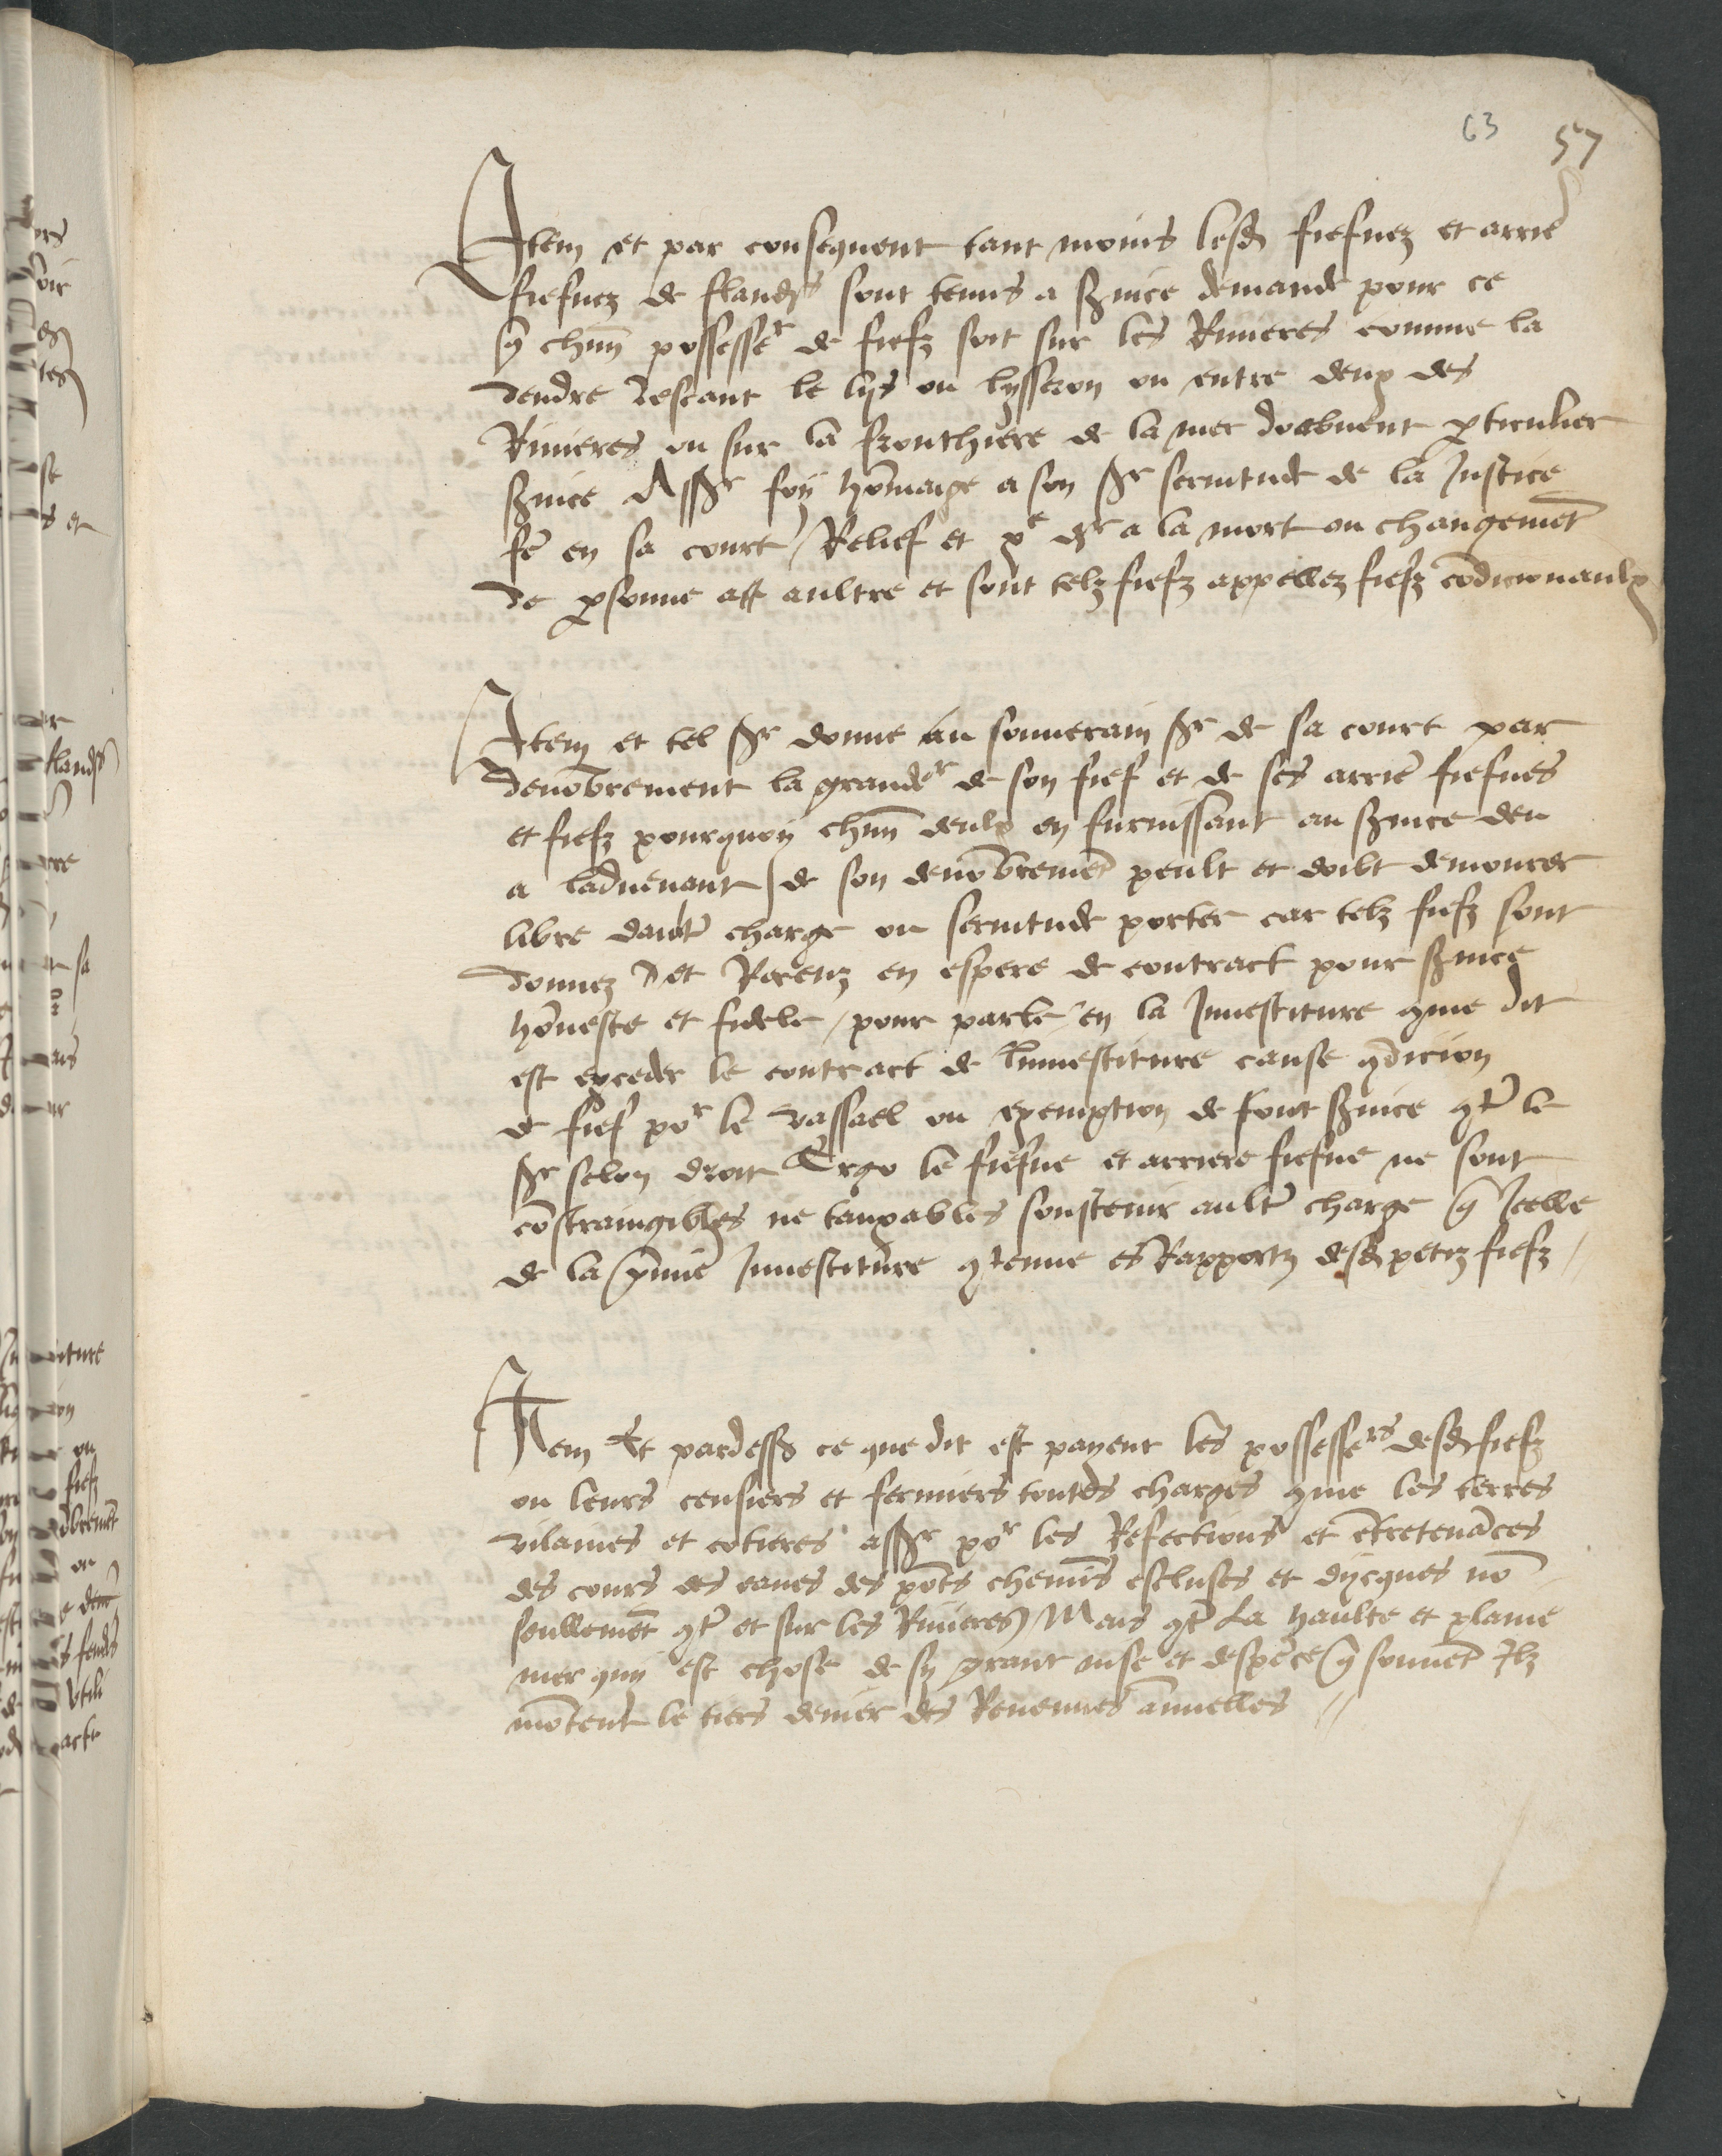 63 57
Item et par consequent tant moins lesd fiefuez et arrie
fiefuez de flandrs sont tenus a s̃uice demande pour ce
q̃ chũn possesser de fiefz soit sur les Riuieres comme la
dendre lescant le lys ou lysseron ou entre deux des
Riuieres ou sur la fronthiere de la mer doibuent pticulier
s̃uice Assr foy hõmaige a son sr seruitude de la Justice
fẽ en sa court / Relief et pe dr a la mort ou changemẽt
de psonne a aultre et sont telz fiefz appellez fiefz cõdicionaulx
Item et tel sr donne au souuerain sr de sa court par
denõbrement la grander de son fief et de ses arriẽ fiefues
et fiefz pourquoy chũn deulx en furnissant au s̃uice deu
a laduenant de son denõbremẽt peult et doibt demourer
libre daultẽ charge ou seruitude porter car telz fiefz sont
donnez et Receuz en espere de contract pour s̃uice
hõneste et fidele / pour parle en la Inuestiture gme dit
est exceder le contract de linuestiture cause gdicion
de fief por le vassael ou exemption de sont s̃uice gt̃ le
sr selon droit Ergo le fiefue et arriere fiefue ne sont
cõstraingibles ne tauxables soustenir ault̃ charge q̃ Icelle
de la p̃miẽ Inuestiture gtenue es Rapportz desd petiz fiefz //
Item Et pardess ce que dit est payent les possessers desd fiefz
ou leurs censiers et fermiers toutes charges gme les terres
vilaines et cotieres assr por les Refections et ẽtretenãces
des cours des eaues des põts chemĩs escluses et dycques nõ
seullemẽt gt̃ et sur les Riuieres / Mais gt̃ La haulte et plaine
mer quy est chose de sy grant mise et despẽce q̃ souuẽt Ilz
mõtent le tiers denier des Reuenues ãnuelles //